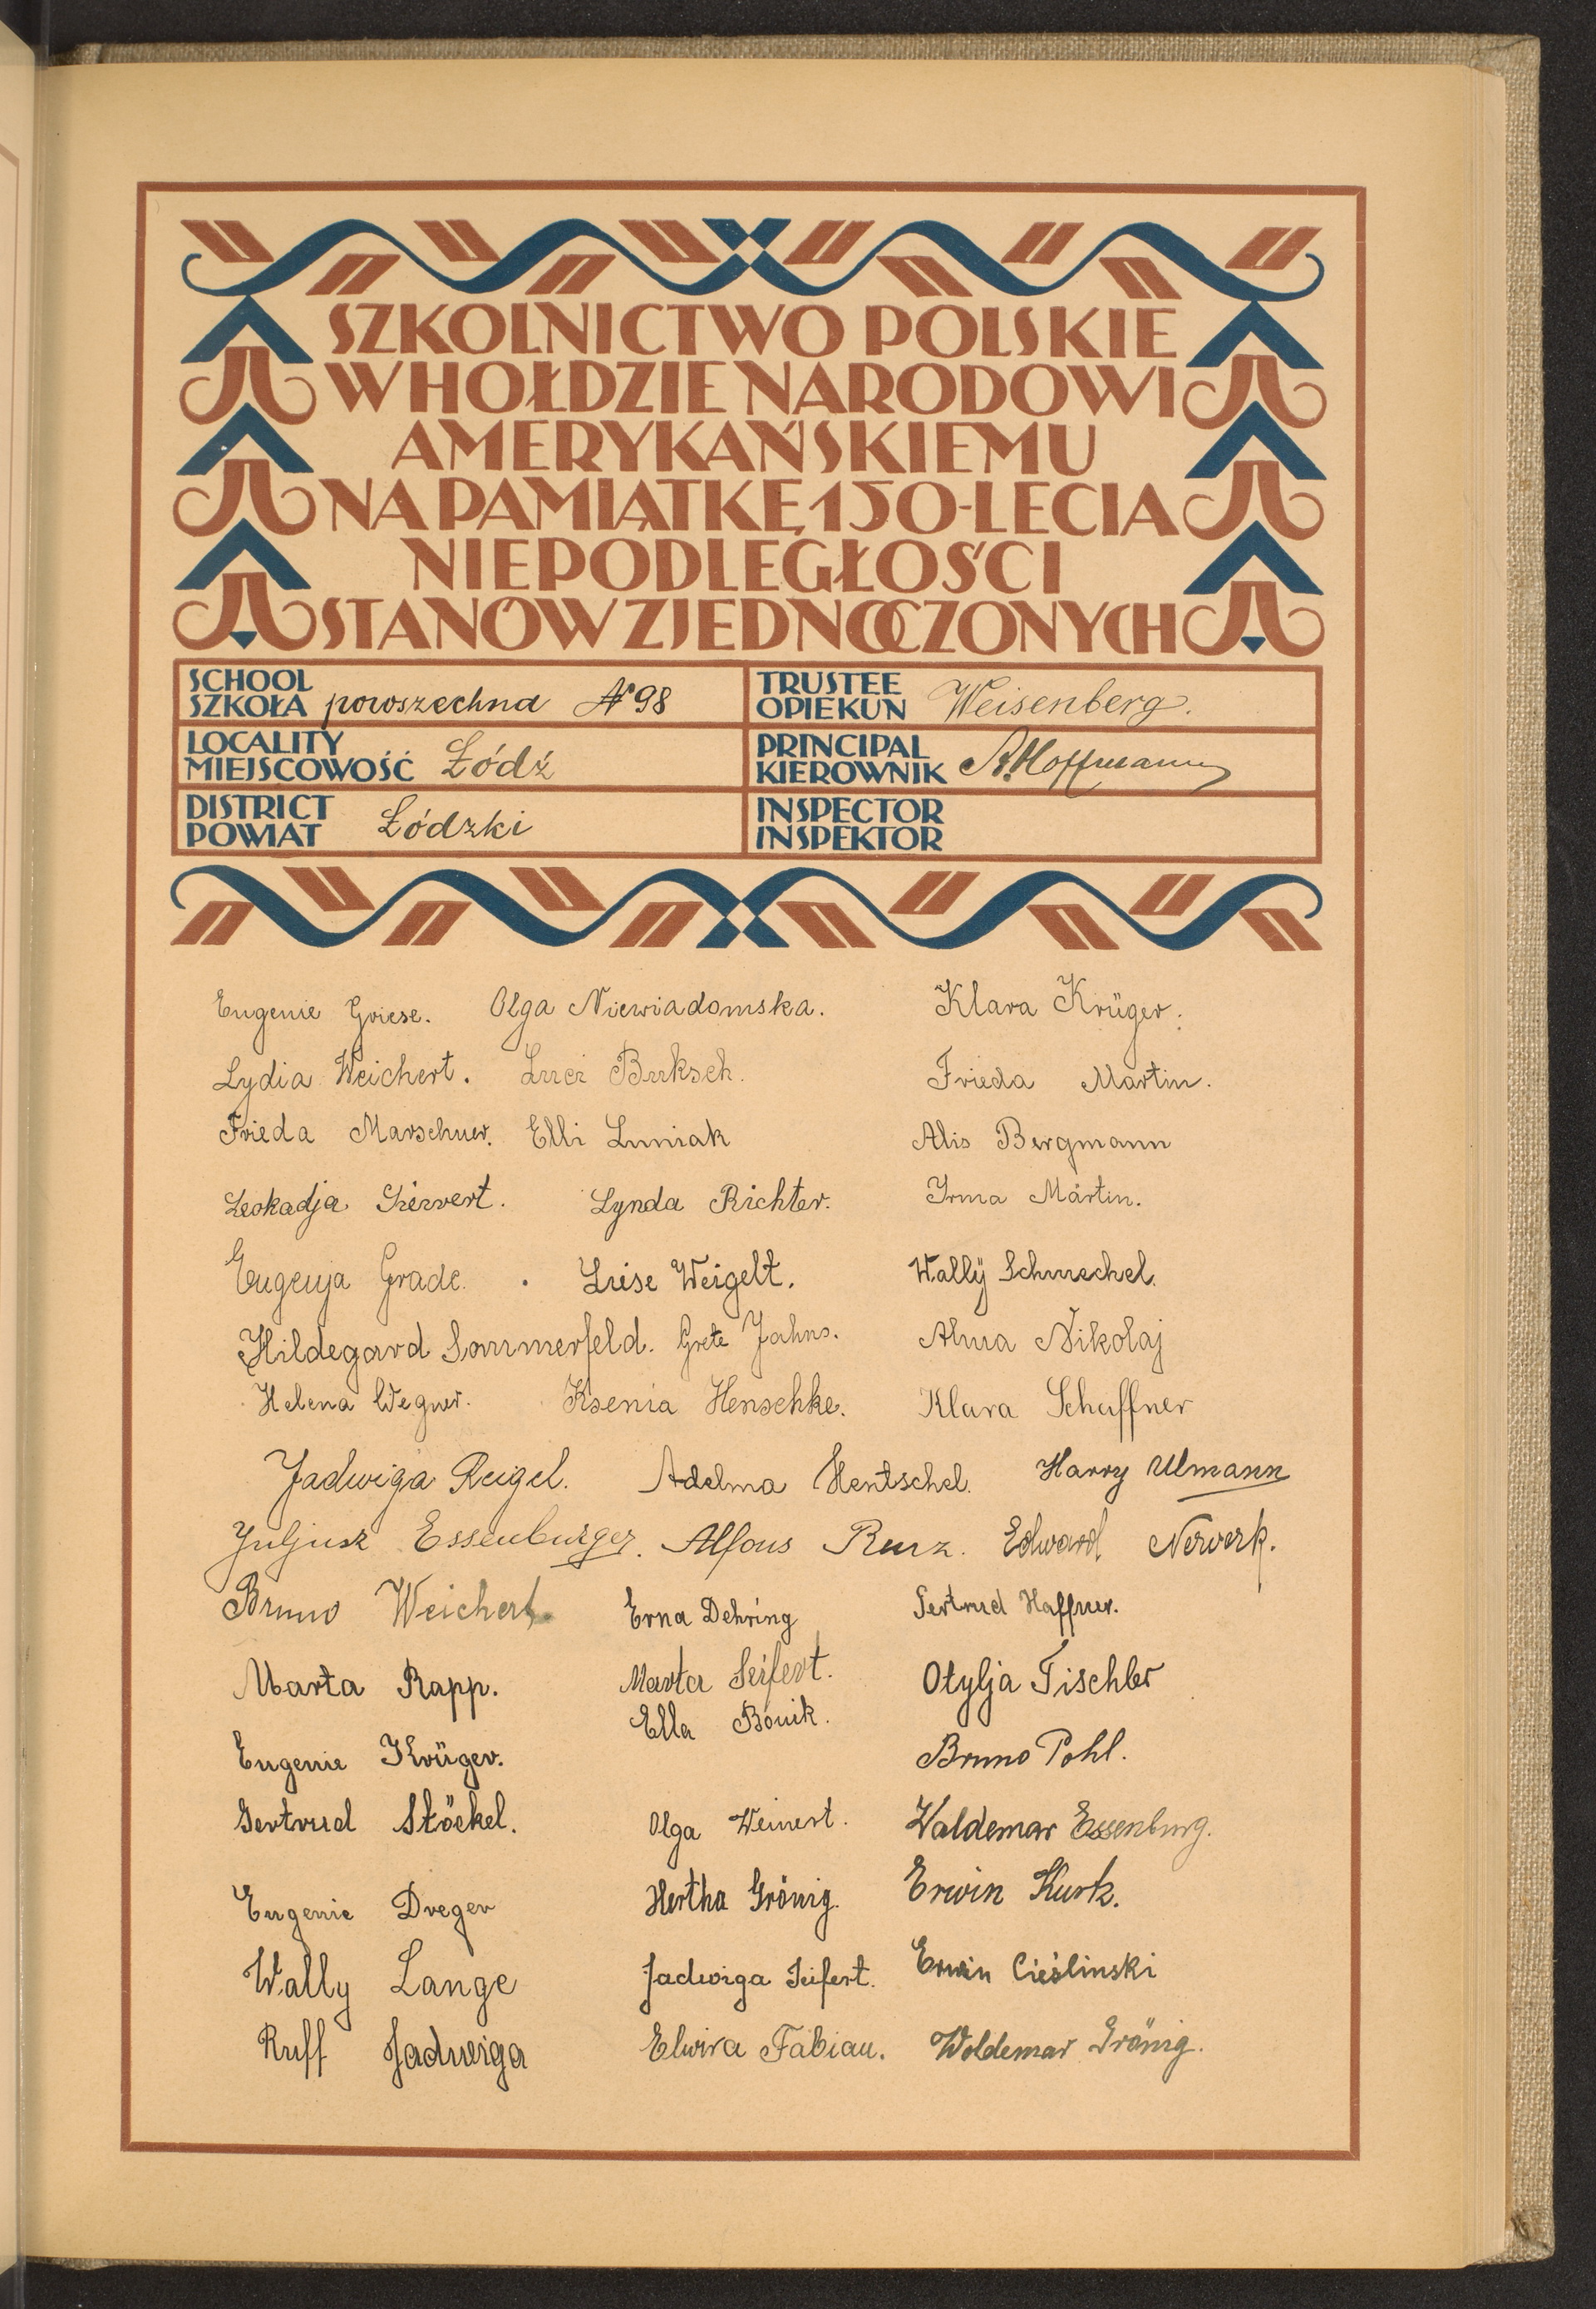 SZKOLNICTWO POLSKIE
W HOŁDZIE NARODOWI
AMERYKAŃSKIEMU
NA PAMIĄTKĘ 150-LECIA
NIEPODLEGŁOŚCI
STANÓW ZJEDNOCZONYCH
SCHOOL SZKOŁA powszechna № 98
TRUSTEE OPIEKUN Weisenberg.
LOCALITY MIEJSCOWOŚĆ Łódź
PRINCIPAL KIEROWNIK A. Hoffmann
DISTRICT POWIAT Łódzki
INSPECTOR INSPEKTOR
Eugenie Griese. Olga Niewiadomska. Klara Krüger.
Lydia Weichert. Luci Buksch. Frieda Martin.
Frieda Marschner. Elli Luniak Alis Bergmann
Leokadja Siewert. Lynda Richter. Irma Martin.
Eugenja Grade. Luise Weigelt. Wally Schmechel.
Hildegard Sommerfeld. Grete Jahns. Alma Nikolaj
Helena Wegner. Ksenia Henschke. Klara Schaffner
Jadwiga Reigel. Adelma Hentschel. Harry Ulmann
Juljusz Essenburger. Alfons Kurz. Edward Nerverk.
Bruno Weichert Erna Dehring Gertrud Haffner.
Marta Rapp. Marta Seifert. Otylja Tischler
Ella Bönik.
Eugenie Krüger. Bruno Pohl.
Gertrud Stöckel. Olga Weinert. Waldemar Essenburg.
Eugenie Dreger Hertha Grönig. Erwin Kurk.
Wally Lange Jadwiga Seifert. Erwin Cieślinski
Ruff Jadwiga Elwira Fabian. Woldemar Grönig.